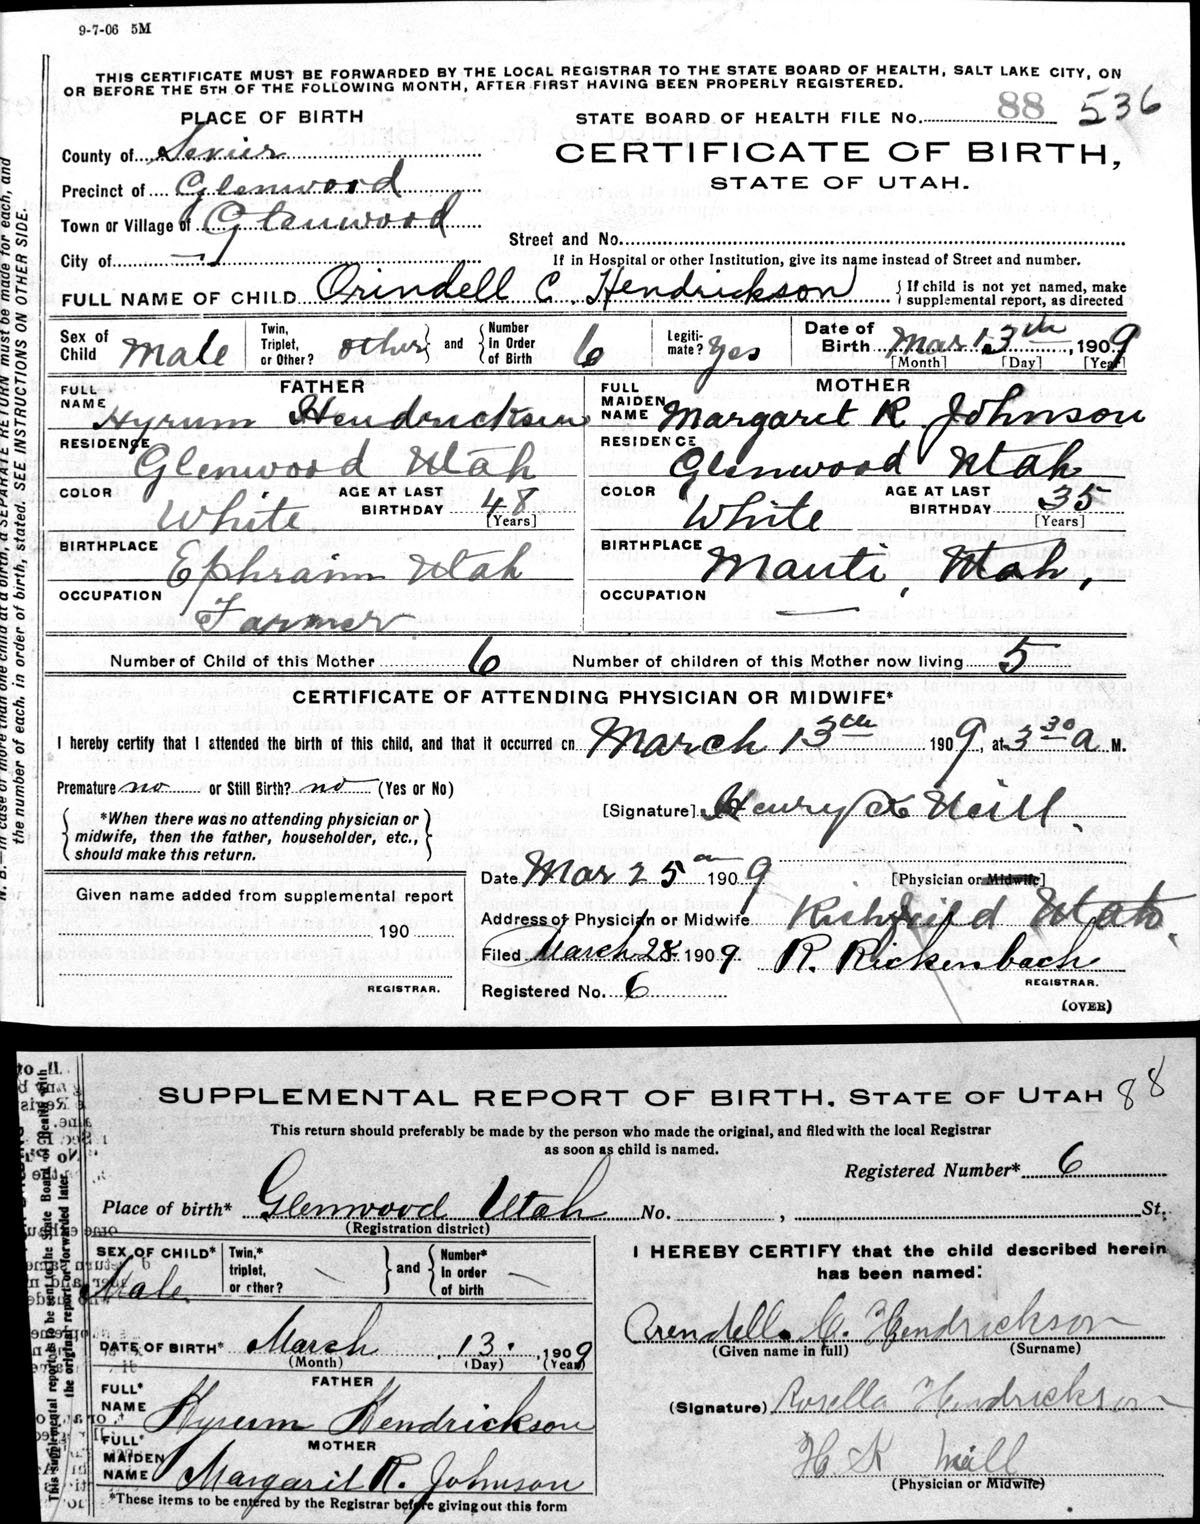 9-7-06 5M
THIS CERTIFICATE MUST BE FORWARDED BY THE LOCAL REGISTRAR TO THE STATE BOARD OF HEALTH, SALT LAKE CITY, ON
OR BEFORE THE 5TH OF THE FOLLOWING MONTH, AFTER FIRST HAVING BEEN PROPERLY REGISTERED.
PLACE OF BIRTH
STATE BOARD OF HEALTH FILE No. 88 536
County of Sevier
CERTIFICATE OF BIRTH,
STATE OF UTAH.
Precinct of Glenwood
Town or Village of Glenwood
Street and No.
City of —
If in Hospital or other Institution, give its name instead of Street and number.
FULL NAME OF CHILD Orindell C. Hendrickson
If child is not yet named, make
supplemental report, as directed
Sex of Child Male
Twin, Triplet, or Other? other and Number in Order of Birth 6
Legitimate? Yes
Date of Birth Mar 13th, 1909
[Month] [Day] [Year]
FATHER
FULL NAME Hyrum Hendricksen
RESIDENCE Glenwood Utah
COLOR White AGE AT LAST BIRTHDAY 48 [Years]
BIRTHPLACE Ephraim Utah
OCCUPATION Farmer
MOTHER
FULL MAIDEN NAME Margaret R Johnson
RESIDENCE Glenwood Utah
COLOR White AGE AT LAST BIRTHDAY 35 [Years]
BIRTHPLACE Manti, Utah,
OCCUPATION —
Number of Child of this Mother 6 Number of children of this Mother now living 5
CERTIFICATE OF ATTENDING PHYSICIAN OR MIDWIFE*
I hereby certify that I attended the birth of this child, and that it occurred on March 13th 1909, at 3 30 a M.
Premature no or Still Birth? no (Yes or No)
[Signature] Henry K Neill.
*When there was no attending physician or
midwife, then the father, householder, etc.,
should make this return.
Date Mar 25 1909
[Physician or Midwife]
Given name added from supplemental report
190
REGISTRAR.
Address of Physician or Midwife Richfield Utah.
Filed March 28 1909 R. Rickenbach
REGISTRAR.
Registered No. 6
(OVER)
N. B.—In case of more than one child at a birth, a SEPARATE RETURN must be made for each, and
the number of each, in order of birth, stated. SEE INSTRUCTIONS ON OTHER SIDE.
SUPPLEMENTAL REPORT OF BIRTH, STATE OF UTAH 88
This return should preferably be made by the person who made the original, and filed with the local Registrar
as soon as child is named.
Registered Number* 6
Place of birth* Glenwood Utah No. , St.
(Registration district)
SEX OF CHILD* Male
Twin,* triplet, or other? — and Number* In order of birth —
I HEREBY CERTIFY that the child described herein
has been named:
Orendell C. Hendrickson
(Given name in full) (Surname)
DATE OF BIRTH* March 13. 1909
(Month) (Day) (Year)
FATHER
FULL* NAME Hyrum Hendrickson
(Signature) Rosella Hendrickson
MOTHER
FULL* MAIDEN NAME Margaret R. Johnson
H K Neill
(Physician or Midwife)
*These items to be entered by the Registrar before giving out this form
This supplemental report to be sent to the State Board of Health with
the original report or forwarded later.